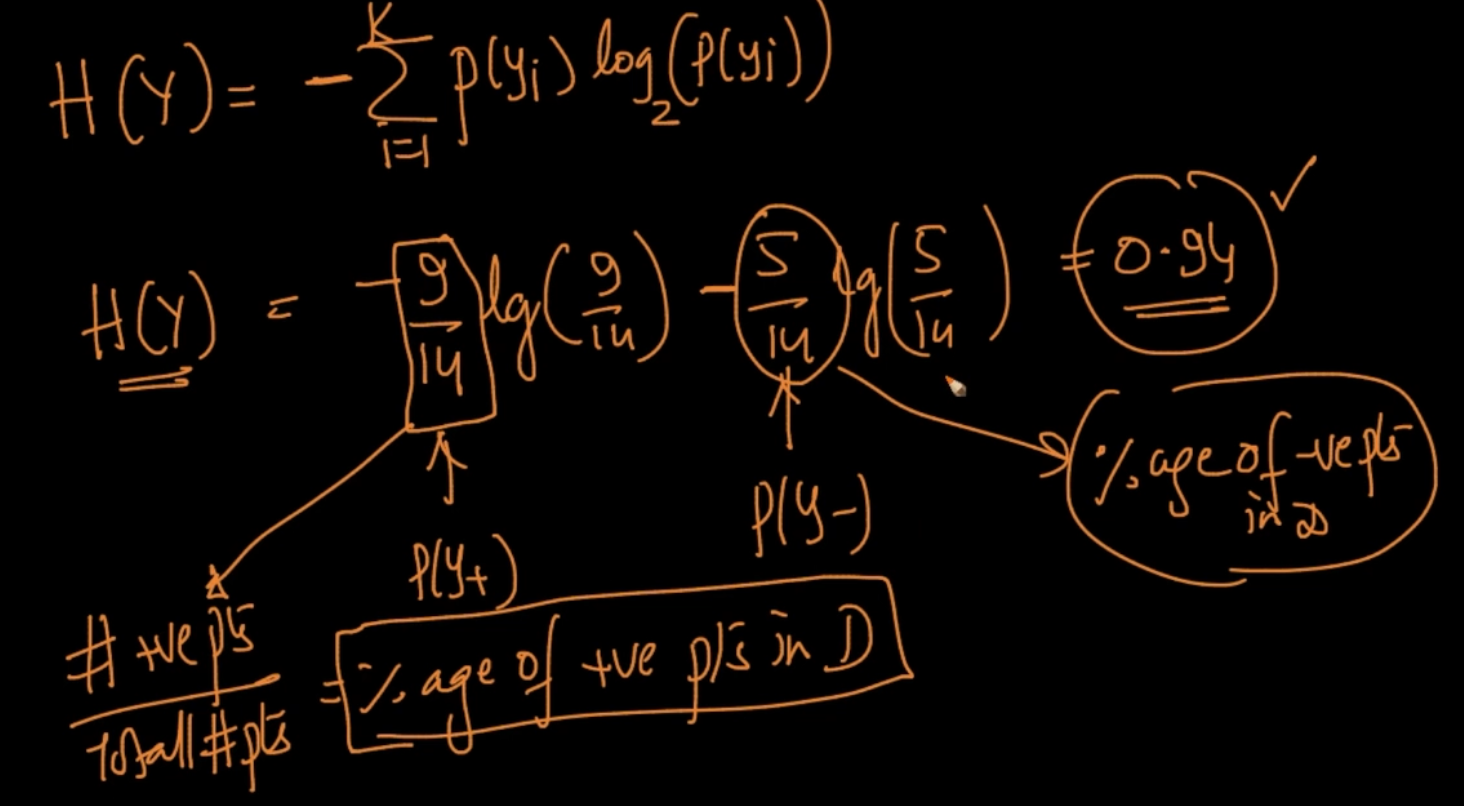 H(Y) = - K Σ i=1 p(yi) log2(P(yi))
H(Y) = - 9/14 lg(9/14) - 5/14 lg(5/14) = 0.94 ✓
%age of -ve pts
in D
P(Y-)
P(Y+)
# +ve pts
Total # pts
= %age of +ve pts in D